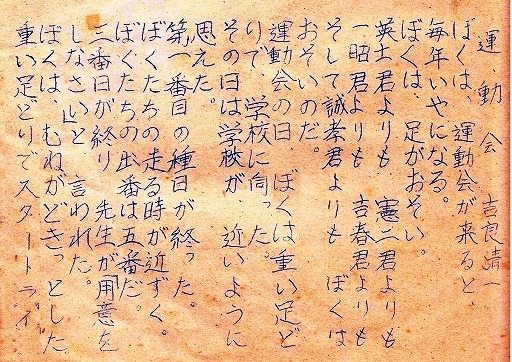 運動会　吉良清一
ぼくは、運動会が来ると、
毎年いやになる。
ぼくは、足がおそい。
英士君よりも　憲二君よりも
一昭君よりも　吉春君よりも
そして誠孝君よりも　ぼくは
おそいのだ。
運動会の日　ぼくは重い足ど
りで、学校に向った。
その日は学校が、近いように
思えた。
第一番目の種目が終った。
ぼくたちの走る時が近ずく。
ぼくたちの出番は五番だ。
三番目が終り　先生が「用意を
しなさい」と　言われた。
ぼくは、むねがどきっとした
重い足どりでスタートライ